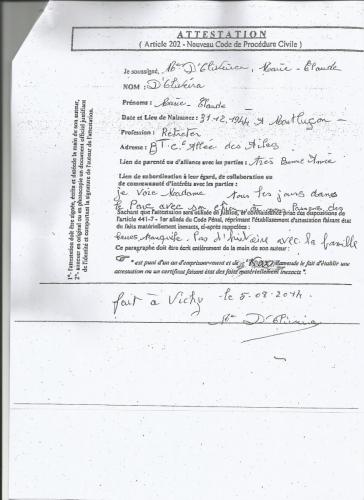 ATTESTATION
( Article 202 - Nouveau Code de Procédure Civile )
Je soussigné, Mme D'Oliveira, Marie-Claude
NOM : D'Oliveira
Prénoms : Marie-Claude
Date et Lieu de Naissance : 31.12.1944 à Montluçon
Profession :
Adresse : Allée des Ailes
Lien de parenté ou d'alliance avec les parties : très Bonne Amie
Lien de subordination à leur égard, de collaboration ou
de communauté d'intérêts avec les parties :
je vois Madame tous les jours dans
le Parc avec son
Sachant que l'attestation sera utilisée en justice, et connaissance prise des dispositions de
l'article 441-7 - 1er alinéa du Code Pénal, réprimant l'établissement d'attestation faisant état
de faits matériellement inexacts, ci-après rappelées :
Pas d'histoire avec la famille
Ce paragraphe doit être écrit entièrement de la main de son auteur :
" est puni d'un an d'emprisonnement et de 15000 d'amende le fait d'établir une
attestation ou un certificat faisant état des faits matériellement inexacts ".
fait à Vichy le 5.08.2014
Mme D'Oliveira
1°- l'attestation doit être signée, écrite et datée de la main de son auteur,
2°- annexer en original ou en photocopie un document officiel justifiant
de l'identité et comportant la signature de l'auteur de l'attestation.